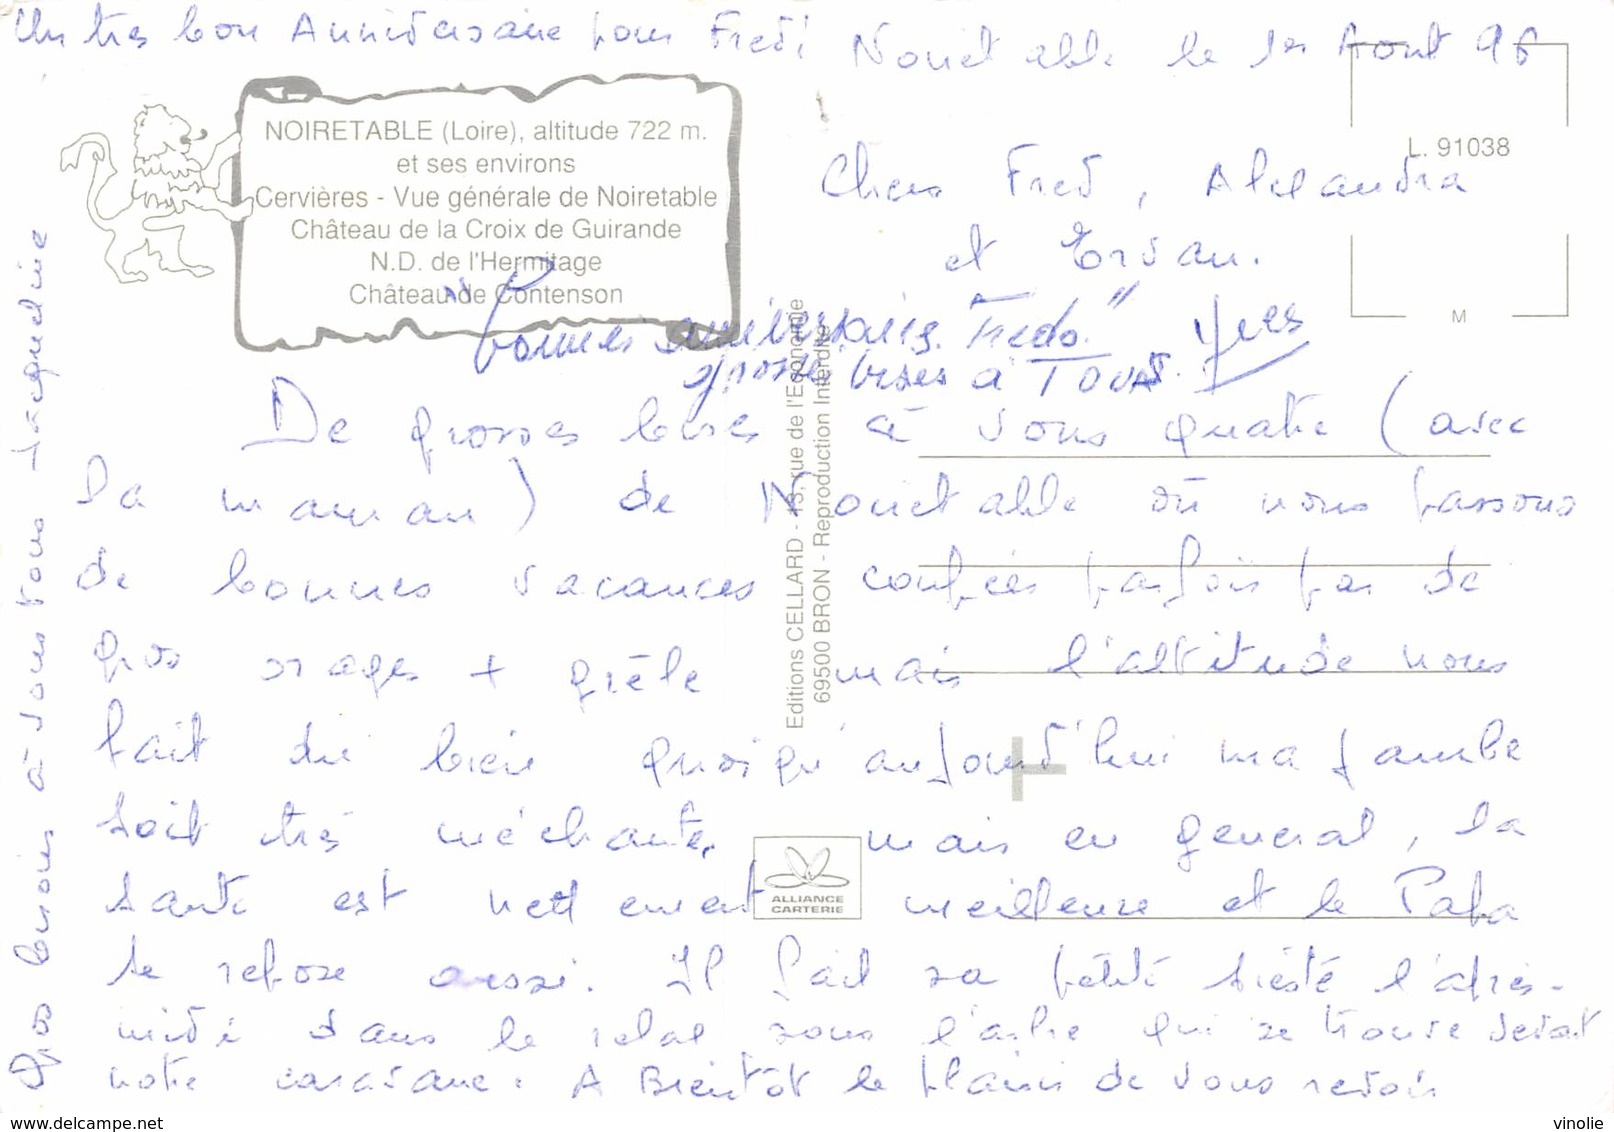 Un tres bon Anniversaire pour Fredi
Noiretable le 1er Aout 96
NOIRETABLE (Loire), altitude 722 m.
et ses environs
Cervières - Vue générale de Noiretable
Château de la Croix de Guirande
N.D. de l'Hermitage
Château de Contenson
L. 91038
M
Chers Fred, Alexandra
et Erwan.
bonnes anniversaires "Fredo" Yves
grosses bises à Tous.
De grosses bises à vous quatre (avec
la maman) de Noiretable où nous passons
de bonnes vacances coupées parfois par de
gros orages + grêle mais l'altitude nous
fait du bien quoiqu'aujourd'hui ma jambe
soit très méchante, mais en general, la
sante est nettement meilleure et le Papa
se repose aussi. Il fait sa petite sieste l'après-
midi dans le relax sous l'arbre qui se trouve devant
notre caravane. A Bientôt le plaisir de vous revoir
Gros bisous à vous tous Jacqueline
Editions CELLARD - 13, rue de l'Economie
69500 BRON - Reproduction Interdite
ALLIANCE
CARTERIE
www.delcampe.net
vinolie